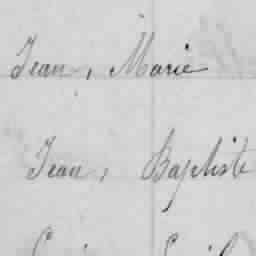 Jean, Marie
Jean, Baptiste